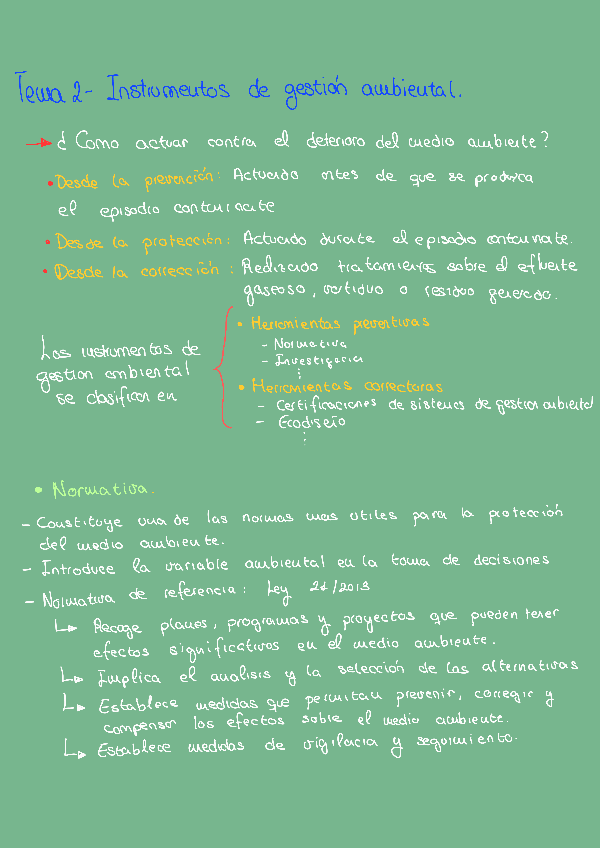 Tema 2- Instrumentos de gestión ambiental.
→ ¿ Como actuar contra el deterioro del medio ambiente?
• Desde la prevención: Actuando antes de que se produzca
el episodio contaminante
• Desde la protección: Actuando durante el episodio contaminante.
• Desde la corrección: Realizando tratamientos sobre el efluente
gaseoso, vertidivo o residuo generado.
Los instrumentos de
gestion ambiental
se clasifican en
• Herramientas preventivas
- Normativa
- Investigación
⋮
• Herramientas correctoras
- Certificaciones de sistemas de gestion ambiental
- Ecodiseño
⋮
• Normativa.
- Constituye una de las normas mas utiles para la protección
del medio ambiente.
- Introduce la variable ambiental en la toma de decisiones
- Normativa de referencia: Ley 21/2013
↳ Recoge planes, programas y proyectos que pueden tener
efectos significativos en el medio ambiente.
↳ Implica el analisis y la selección de las alternativas
↳ Establece medidas que permitan prevenir, corregir y
compensar los efectos sobre el medio ambiente.
↳ Establece medidas de vigilancia y seguimiento.